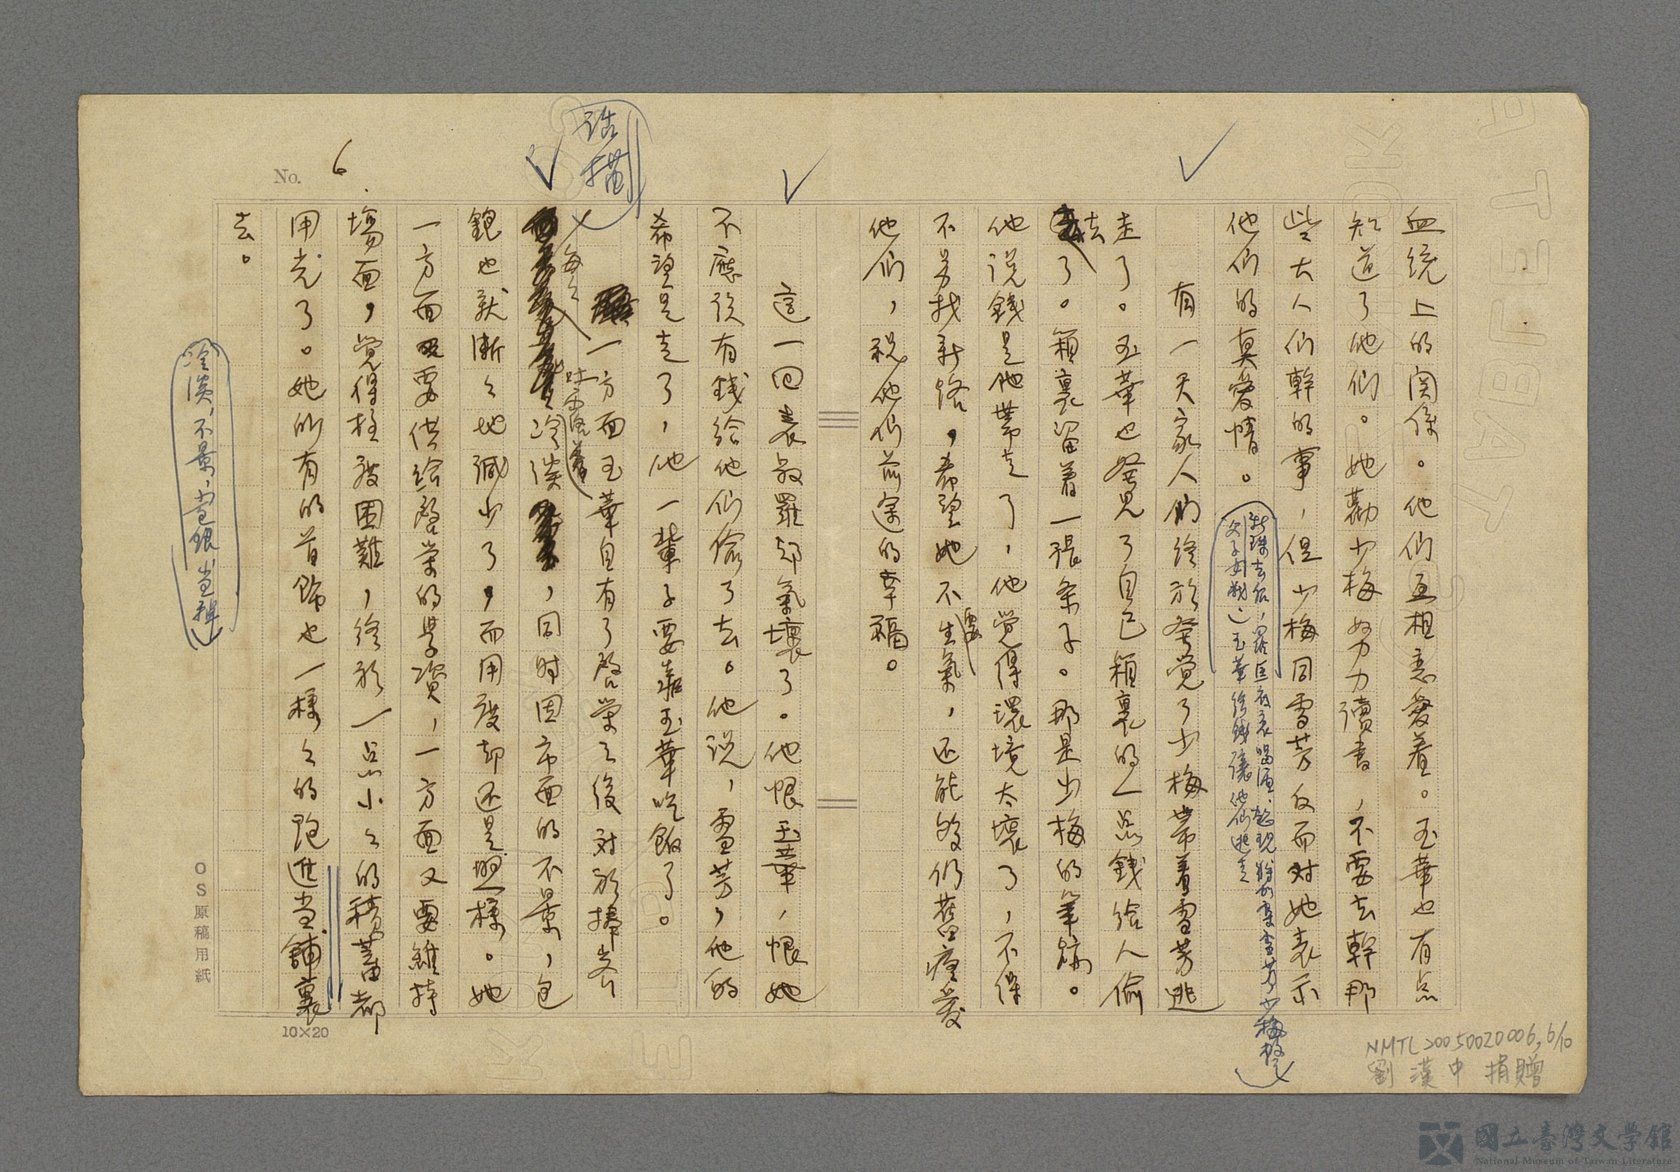 血統上的関係。他们互相恋愛着。玉華也有点
知道了他们。她勸少梅努力讀書，不要去幹那
些大人们幹的事，但少梅同雪芳反而对她表示
他们的真愛情。
有一天家人们终於發覚了少梅帶着雪芳逃
走了。玉華也發見了自己箱裏的一点錢给人偷
去了。箱裏留着一張条子。那是少梅的筆跡。
他説錢是他帶走了，他覚得環境太壞了，不得
不另找新路，希望她不要生氣，还能够仍舊疼愛
他们，祝他们前途的幸福。
這一回表叔羅却氣壞了。他恨玉華，恨她
不應該有錢给他们偷了去。他説，雪芳，他的
希望是走了，他一輩子要靠玉華吃飯了。
一方面玉華自有了啓棠之後対於掃岑
冷淡，同时因市面的不景，包
銀也就漸々地減少了，而用度却还是照樣。她
一方面要供给啓棠的學資，一方面又要維持
場面，覚得極度困難，终於一点小々的積蓄都
用光了。她所有的首飾也一樣々的跑進当舖裏
去。
冷淡，不景，包銀，当舖
詰描
No. 6
10×20
OS原稿用紙
NMTL20050020006,6/10
劉漢中 捐贈
國立臺灣文學館
National Museum of Taiwan Literature